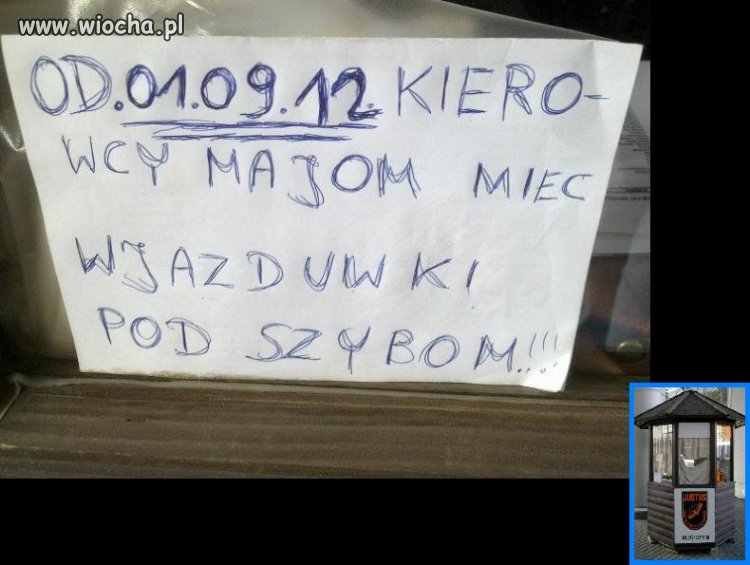 www.wiocha.pl
OD.01.09.12. KIERO-
WCY MAJOM MIEC
WJAZDUWKI
POD SZYBOM!!!
JUSTUS